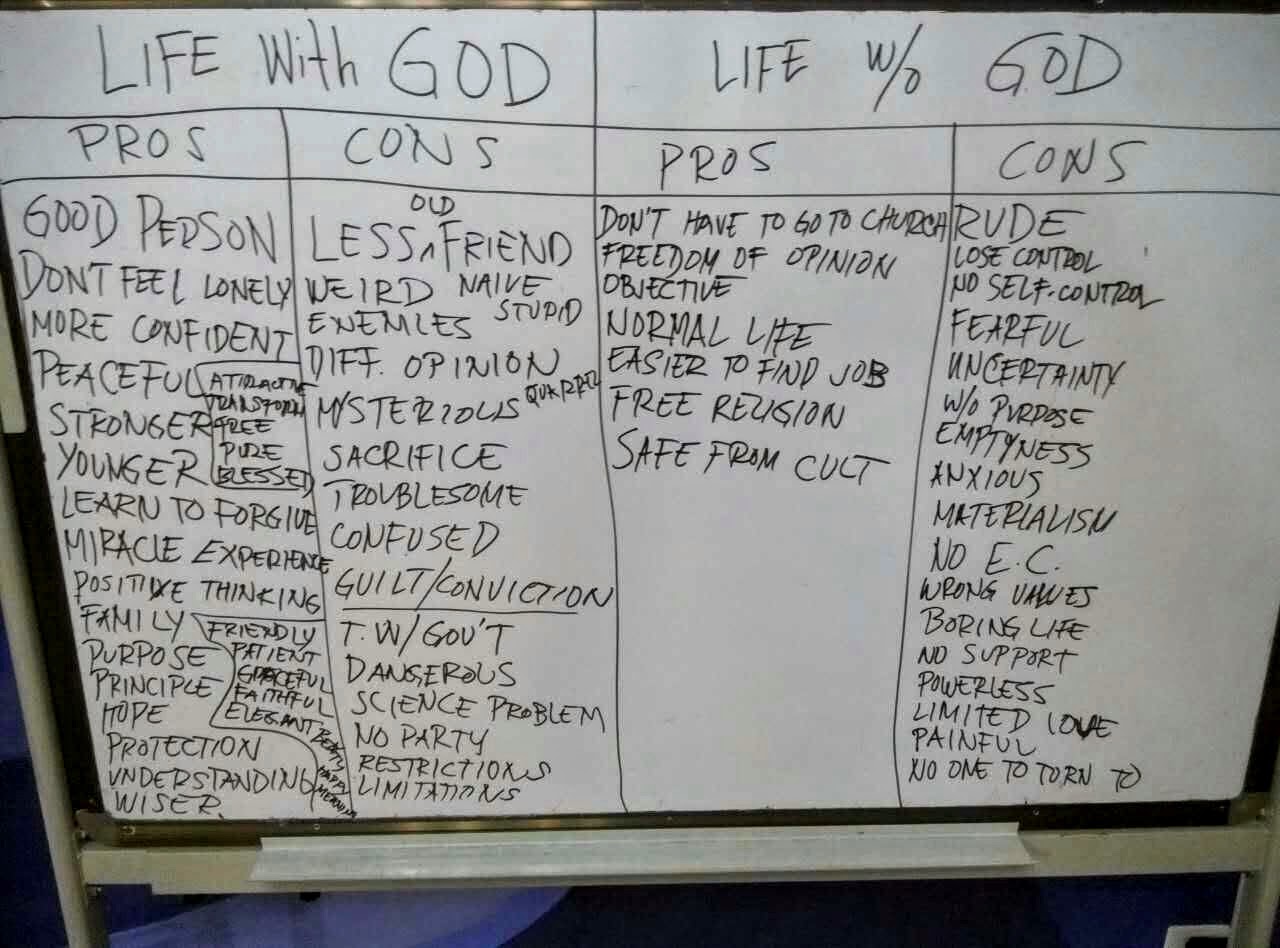 LIFE With GOD
LIFE W/o GOD
PROS
CONS
PROS
CONS
GOOD PERSON
DON'T FEEL LONELY
MORE CONFIDENT
PEACEFUL
STRONGER
YOUNGER
ATTRACTIVE
TRANSFORM
FREE
PURE
BLESSED
LEARN TO FORGIVE
MIRACLE EXPERIENCE
POSITIVE THINKING
FAMILY
PURPOSE
PRINCIPLE
HOPE
PROTECTION
UNDERSTANDING
WISER.
FRIENDLY
PATIENT
GRACEFUL
FAITHFUL
ELEGANT
BEAUTY
HAPPY
OLD
LESS ^ FRIEND
WEIRD NAIVE
STUPID
ENEMIES
DIFF. OPINION
QUARREL
MYSTERIOUS
SACRIFICE
TROUBLESOME
CONFUSED
GUILT/CONVICTION
T. W/ GOV'T
DANGEROUS
SCIENCE PROBLEM
NO PARTY
RESTRICTIONS
LIMITATIONS
DON'T HAVE TO GO TO CHURCH
FREEDOM OF OPINION
OBJECTIVE
NORMAL LIFE
EASIER TO FIND JOB
FREE RELIGION
SAFE FROM CULT
RUDE
LOSE CONTROL
NO SELF-CONTROL
FEARFUL
UNCERTAINTY
W/O PURPOSE
EMPTYNESS
ANXIOUS
MATERIALISM
NO E.C.
WRONG VALUES
BORING LIFE
NO SUPPORT
POWERLESS
LIMITED LOVE
PAINFUL
NO ONE TO TORN TO